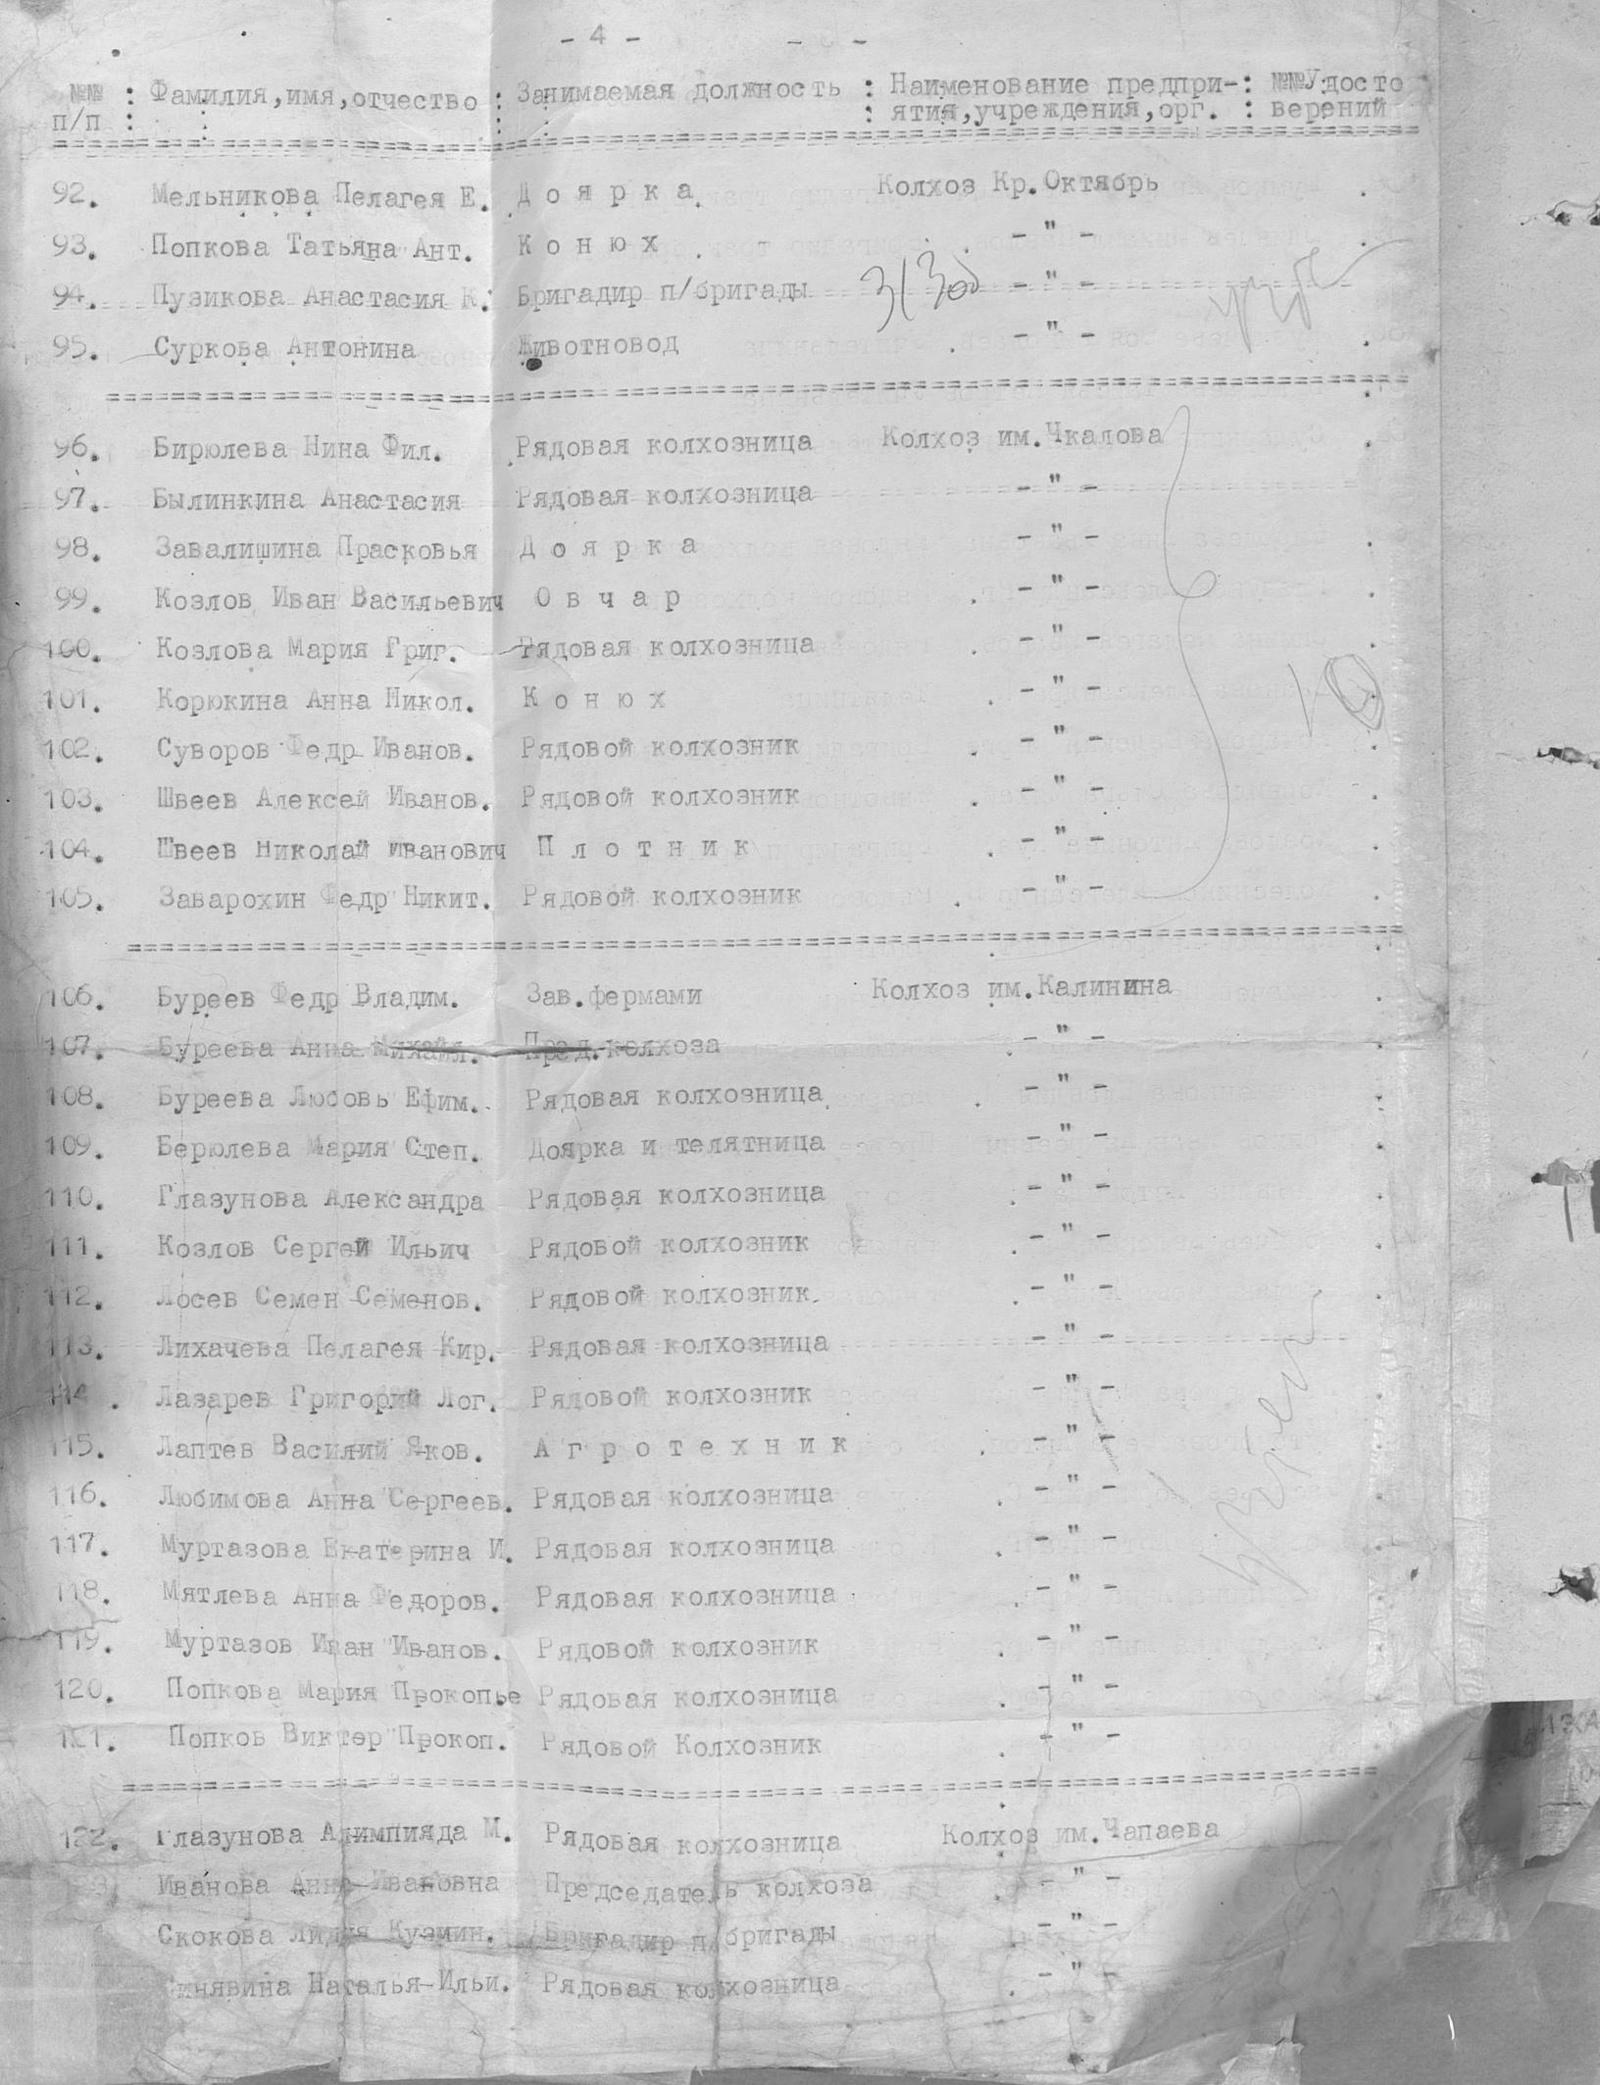 - 4 -
№№ : Фамилия,имя,отчество : Занимаемая должность : Наименование предпри- : №№Удосто
п/п : : : ятия,учреждения,орг. : верений
92. Мельникова Пелагея Е. Доярка Колхоз Кр.Октябрь
93. Попкова Татьяна Ант. Конюх - " -
94. Пузикова Анастасия К. Бригадир п/бригады - " -
95. Суркова Антонина Животновод - " -
96. Бирюлева Нина Фил. Рядовая колхозница Колхоз им.Чкалова
97. Былинкина Анастасия Рядовая колхозница - " -
98. Завалишина Прасковья Доярка - " -
99. Козлов Иван Васильевич Овчар - " -
100. Козлова Мария Григ. Рядовая колхозница - " -
101. Корюкина Анна Никол. Конюх - " -
102. Суворов Федр Иванов. Рядовой колхозник - " -
103. Швеев Алексей Иванов. Рядовой колхозник - " -
104. Швеев Николай Иванович Плотник - " -
105. Заварохин Федр Никит. Рядовой колхозник - " -
106. Буреев Федр Владим. Зав.фермами Колхоз им.Калинина
107. Буреева Анна Михайл. Пред.колхоза - " -
108. Буреева Любовь Ефим. Рядовая колхозница - " -
109. Берюлева Мария Степ. Доярка и телятница - " -
110. Глазунова Александра Рядовая колхозница - " -
111. Козлов Сергей Ильич Рядовой колхозник - " -
112. Лосев Семен Семенов. Рядовой колхозник. - " -
113. Лихачева Пелагея Кир. Рядовая колхозница - " -
114. Лазарев Григорий Лог. Рядовой колхозник - " -
115. Лаптев Василий Яков. Агротехник - " -
116. Любимова Анна Сергеев. Рядовая колхозница - " -
117. Муртазова Екатерина И. Рядовая колхозница - " -
118. Мятлева Анна Федоров. Рядовая колхозница - " -
119. Муртазов Иван Иванов. Рядовой колхозник - " -
120. Попкова Мария Прокопье Рядовая колхозница - " -
121. Попков Виктор Прокоп. Рядовой Колхозник - " -
122. Глазунова Алимпияда М. Рядовая колхозница Колхоз им.Чапаева
Иванова Анна Ивановна Председатель колхоза - " -
Скокова Лидия Кузмин. Бригадир п/бригады - " -
инявина Наталья Ильи. Рядовая колхозница - " -